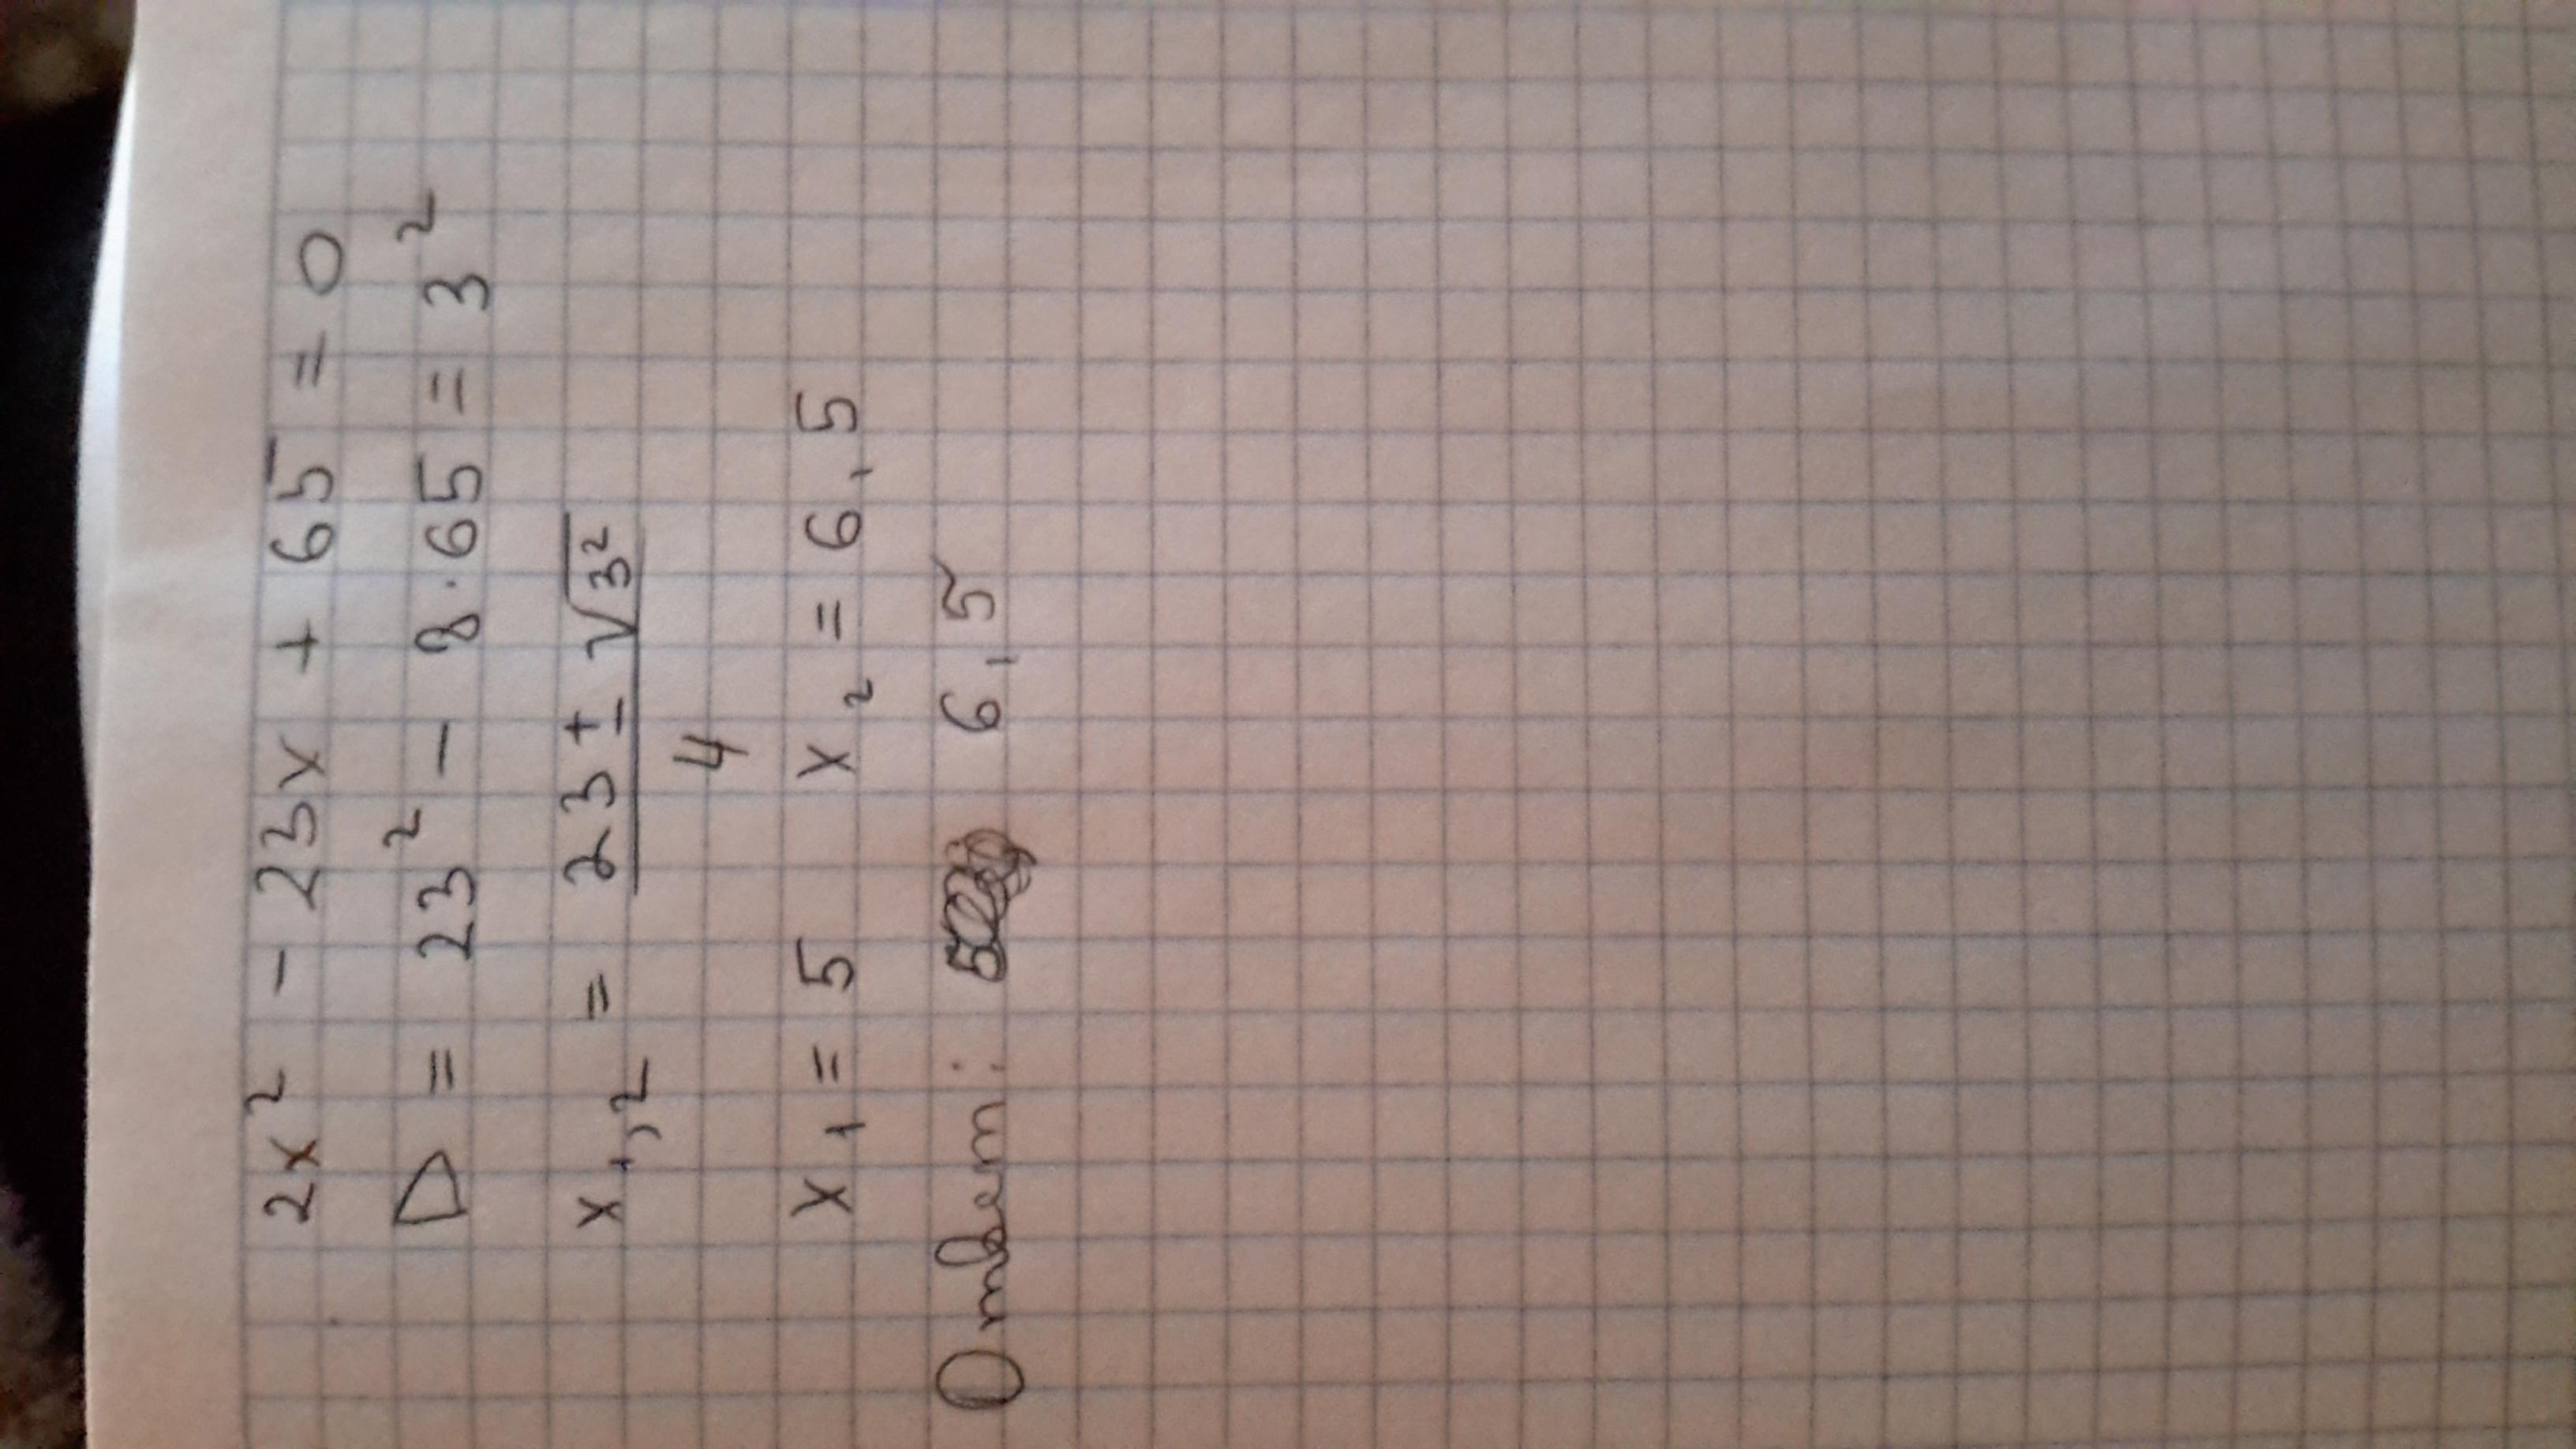 2x² - 23x + 65 = 0
D = 23² - 8·65 = 3²
x₁,₂ = (23 ± √3²) / 4
x₁ = 5 x₂ = 6,5
Ответ: 6,5